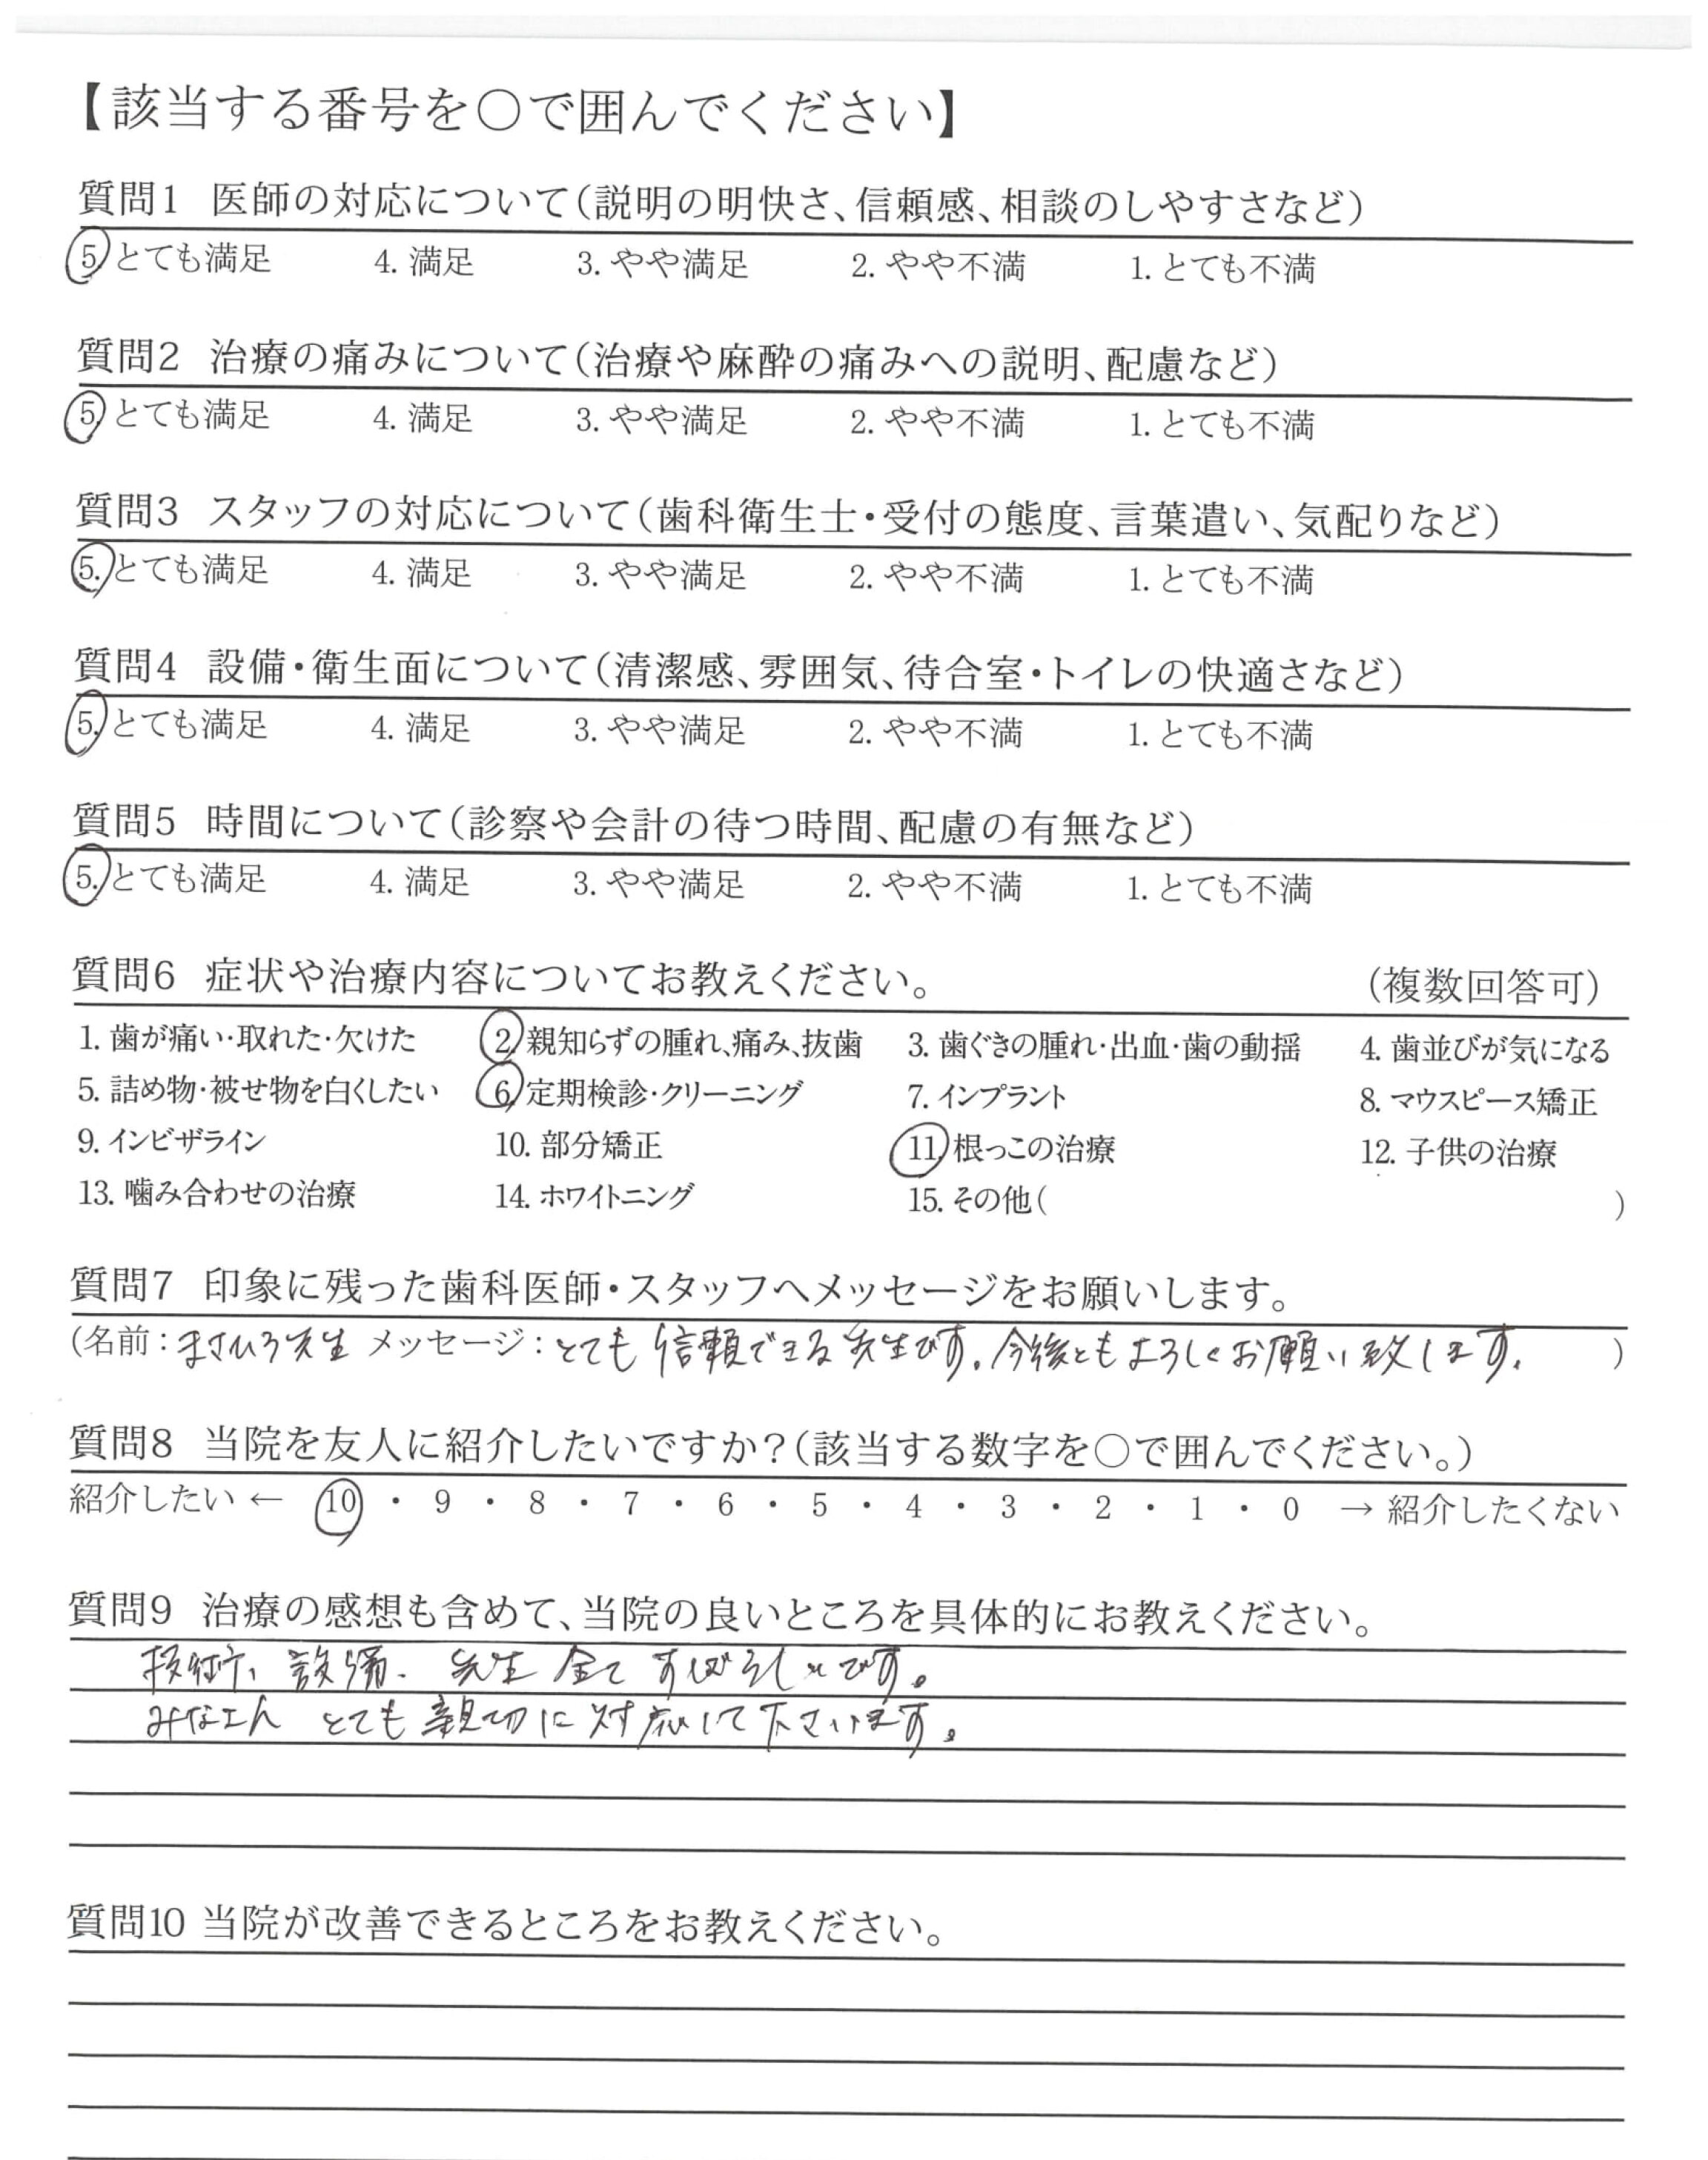 【該当する番号を○で囲んでください】
質問1 医師の対応について(説明の明快さ、信頼感、相談のしやすさなど)
5. とても満足 4. 満足 3. やや満足 2. やや不満 1. とても不満
質問2 治療の痛みについて(治療や麻酔の痛みへの説明、配慮など)
5. とても満足 4. 満足 3. やや満足 2. やや不満 1. とても不満
質問3 スタッフの対応について(歯科衛生士・受付の態度、言葉遣い、気配りなど)
5. とても満足 4. 満足 3. やや満足 2. やや不満 1. とても不満
質問4 設備・衛生面について(清潔感、雰囲気、待合室・トイレの快適さなど)
5. とても満足 4. 満足 3. やや満足 2. やや不満 1. とても不満
質問5 時間について(診察や会計の待つ時間、配慮の有無など)
5. とても満足 4. 満足 3. やや満足 2. やや不満 1. とても不満
質問6 症状や治療内容についてお教えください。 (複数回答可)
1. 歯が痛い・取れた・欠けた 2. 親知らずの腫れ、痛み、抜歯 3. 歯ぐきの腫れ・出血・歯の動揺 4. 歯並びが気になる
5. 詰め物・被せ物を白くしたい 6. 定期検診・クリーニング 7. インプラント 8. マウスピース矯正
9. インビザライン 10. 部分矯正 11. 根っこの治療 12. 子供の治療
13. 噛み合わせの治療 14. ホワイトニング 15. その他( )
質問7 印象に残った歯科医師・スタッフへメッセージをお願いします。
(名前：まさひろ先生 メッセージ：とても信頼できる先生です。今後ともよろしくお願い致します。 )
質問8 当院を友人に紹介したいですか？(該当する数字を○で囲んでください。)
紹介したい ← 10 ・ 9 ・ 8 ・ 7 ・ 6 ・ 5 ・ 4 ・ 3 ・ 2 ・ 1 ・ 0 → 紹介したくない
質問9 治療の感想も含めて、当院の良いところを具体的にお教えください。
技術、設備、先生 全て すばらしいです。
みなさん とても 親切に 対応して下さいます。
質問10 当院が改善できるところをお教えください。